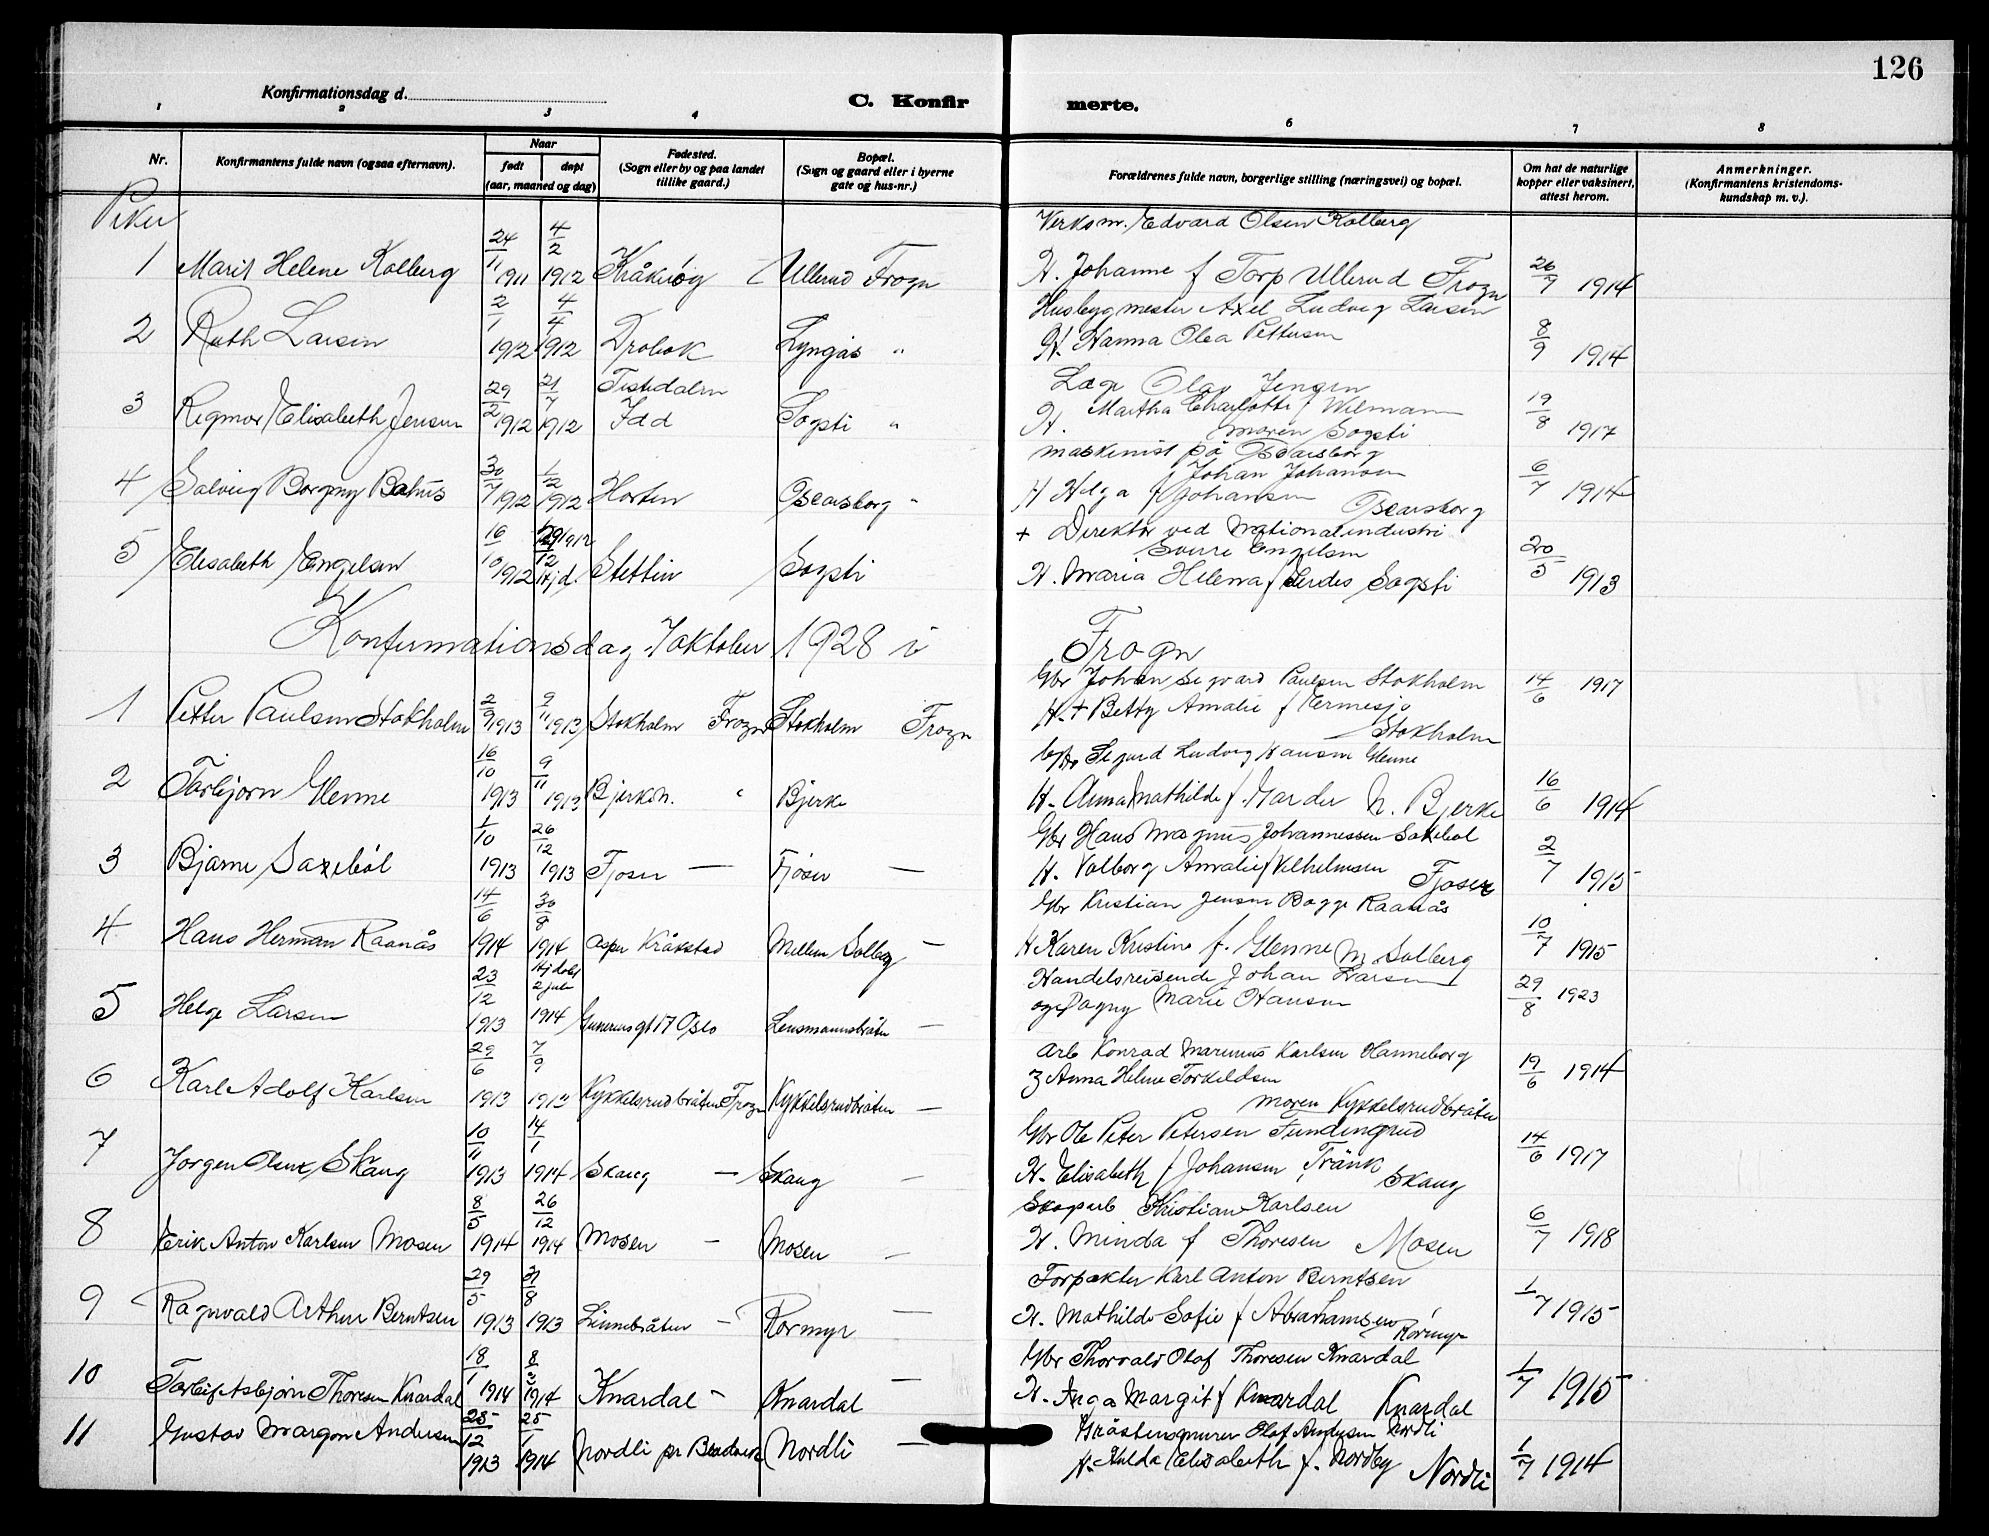 126
Konfirmationsdag d.
C. Konfirmerte.
1 2 3 4 6 7 8
Nr.
Konfirmantens fulde navn (ogsaa efternavn).
Naar
født døpt
(aar, maaned og dag)
Fødested.
(Sogn eller by og paa landet
tillike gaard.)
Bopæl.
(Sogn og gaard eller i byerne
gate og hus-nr.)
Forældrenes fulde navn, borgerlige stilling (næringsvei) og bopæl.
Om hat de naturlige
kopper eller vaksinert,
attest herom.
Anmerkninger.
(Konfirmantens kristendoms-
kundskap m. v.).
Piker
Verksm. Edvard Olsen Kolberg
1 Marit Helene Kolberg 24/11 1911 4/2 1912 Kråkerøy Ullerud Frogn H. Johanne f Torp Ullerud Frogn 26/9 1914
Husbygmester Axel Ludvig Larsen
2 Ruth Larsen 2/1 1912 4/4 1912 Drøbak Lyngås " H. Hanna Olea Pettersen 8/9 1914
Tistedalen Læge Olav Jensen
3 Rigmor Elisabeth Jensen 29/2 1912 21/7 1912 Idd Sogsti " H. Martha Charlotte f Wilmann 19/8 1917
moren Sogsti
maskinist på Oscarsborg
Johan Johansen
4 Solveig Borgny Bahus 30/7 1912 1/12 1912 Horten Oscarsborg " H Helga f Johansen Oscarsborg 6/7 1914
+ Direktør ved Nationalindustri
Sverre Engelsen
5 Elisabeth Engelsen 16/10 1912 Hjd. Stettin Sogsti H. Maria Helena f Gerdes Sogsti 20/5 1913
Konfirmationsdag 7 oktober 1928 i Frogn
Gbr Johan Sigvard Paulsen Stokholm 14/6 1917
1 Petter Paulsen Stokholm 2/9 1913 9/11 1913 Stokholm Frogn Stokholm Frogn H. + Betty Amalie f Ermesjø
Stokholm
Gbr Sigurd Ludvig Hansen Glenne
2 Torbjørn Glenne 16/10 1913 9/11 1913 Bjerke n. " Bjerke H. Anna Mathilde f. Garder N. Bjerke 16/6 1914
Gbr Hans Magnus Johannessen Saxebøl
3 Bjarne Saxebøl 1/10 1913 26/12 1913 Fjøser — Fjøser — H. Valborg Amalie f Vilhelmsen Fjøser 2/7 1915
Gbr Kristian Jensen Bagge Raanås
4 Hans Herman Raanås 14/6 1914 30/8 1914 Asper Kråkstad Mellem Solberg — H Karen Kristine f. Glenne M Solberg 10/7 1915
Handelsreisende Johan Larsen
5 Helge Larsen 23/12 1913 Hjdøbt 2 juli 1914 gt 17 Oslo Lensmannsbråten — og Dagny Marie Hansen 29/8 1923
Arb Konrad Marinus Karlsen Hanneborg
6 Karl Adolf Karlsen 29/6 1913 7/9 1913 Kykkelsrudbråten Frogn Kykkelsrudbråten — Anna Helene Torkildsen 19/6 1914
moren Kykkelsrudbråten
Gbr Ole Peter Petersen Fundingrud
7 Jørgen Skaug 10/11 1913 14/1 1914 Skaug — Skaug — H. Elisabeth f Johansen Tränk Skaug 14/6 1917
Skogarb Kristian Karlsen
8 Erik Anton Karlsen Mosen 8/5 1914 26/12 1914 Mosen — Mosen — H. Minda f Thoresen Mosen 6/7 1918
Forpakter Karl Anton Berntsen
9 Ragnvald Arthur Berntsen 29/5 1913 31/8 1913 Linnebråten — Rørmyr — H. Mathilde Sofie f Abrahamsen Rørmyr 1/7 1915
Gbr Thorvald Olaf Thoresen Knardal
10 Torleif Asbjørn Thoresen Knardal 18/1 1914 8/3 1914 Knardal — Knardal — H. Inga Margit f Knardal Knardal 1/7 1915
Gråstensmurer Olaf Andersen Nordli
11 Gustav Margon Andersen 25/12 1913 25/1 1914 Nordli pr Nordli — H. Hulda Elisabeth f. Nordby Nordli 1/7 1914